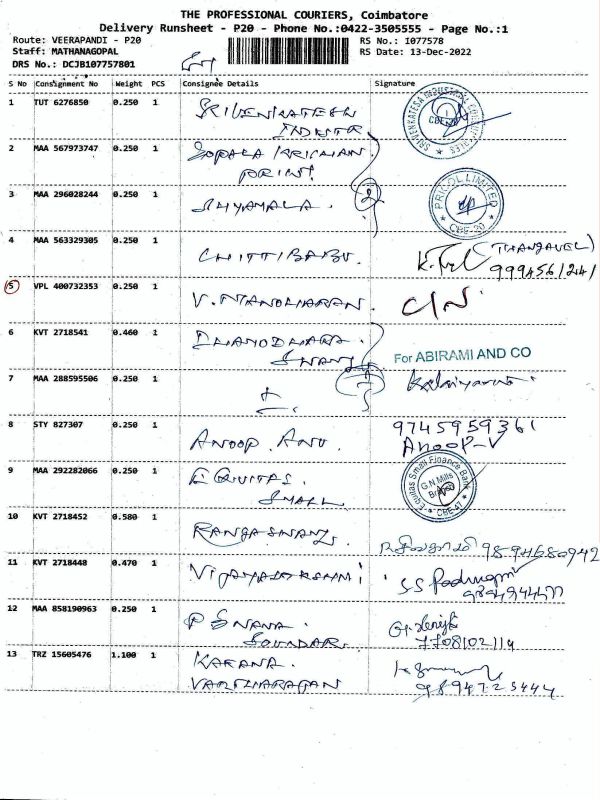 THE PROFESSIONAL COURIERS, Coimbatore
Delivery Runsheet - P20 - Phone No.:0422-3505555 - Page No.:1
Route: VEERAPANDI - P20 RS No.: I077578
Staff: MATHANAGOPAL RS Date: 13-Dec-2022
DRS No.: DCJB107757801
S No Consignment No Weight PCS Consignee Details Signature
1 TUT 6276850 0.250 1 SRIVENKATESH
2 MAA 567973747 0.250 1 GOPALA KRISHNAN
PRINT
3 MAA 296028244 0.250 1 SHYAMALA. PRICOL LIMITED
* CBE-20 *
4 MAA 563329305 0.250 1 CHITTIBABU. (THANGAVEL)
9994561241
5 VPL 400732353 0.250 1 V. MANOHARAN. C/N
6 KVT 2718541 0.460 1
For ABIRAMI AND CO
7 MAA 288595506 0.250 1
8 STY 827307 0.250 1 ANOOP. 9745959361
ANOOP-V
9 MAA 292282066 0.250 1 EQUITAS. Equitas Small Finance Bank
SMALL G.N Mills
Branch
* CBE-47 *
10 KVT 2718452 0.580 1 RANGASWAMY. 9894680942
11 KVT 2718448 0.470 1 VIJAYALAKSHMI
12 MAA 858190963 0.250 1 P GNANA
SOUNDAR. 7708102114
13 TRZ 15605476 1.100 1 KARANA.
VARTHARAJAN 9894723444